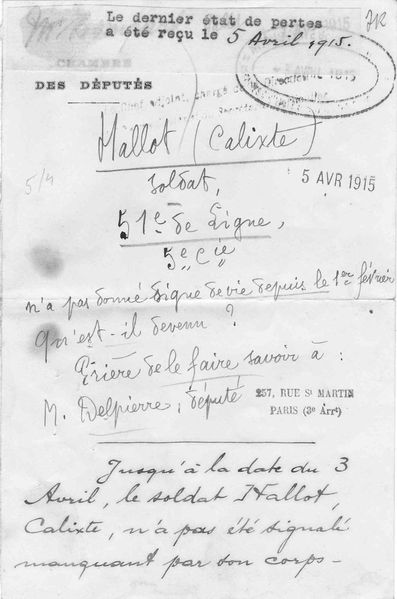 Le dernier état de pertes
a été reçu le 5 Avril 1915.
712
CHAMBRE
DES DÉPUTÉS
Hallot (Calixte)
soldat,
5/4
5 AVR 1915
51e de Ligne,
5e Cie
n'a pas donné signe de vie depuis le 1er février
Qu'est-il devenu ?
Prière de le faire savoir à :
M. Delpierre, député
257, RUE St MARTIN
PARIS (3e Arrt)
Jusqu'à la date du 3
Avril, le soldat Hallot,
Calixte, n'a pas été signalé
manquant par son corps-